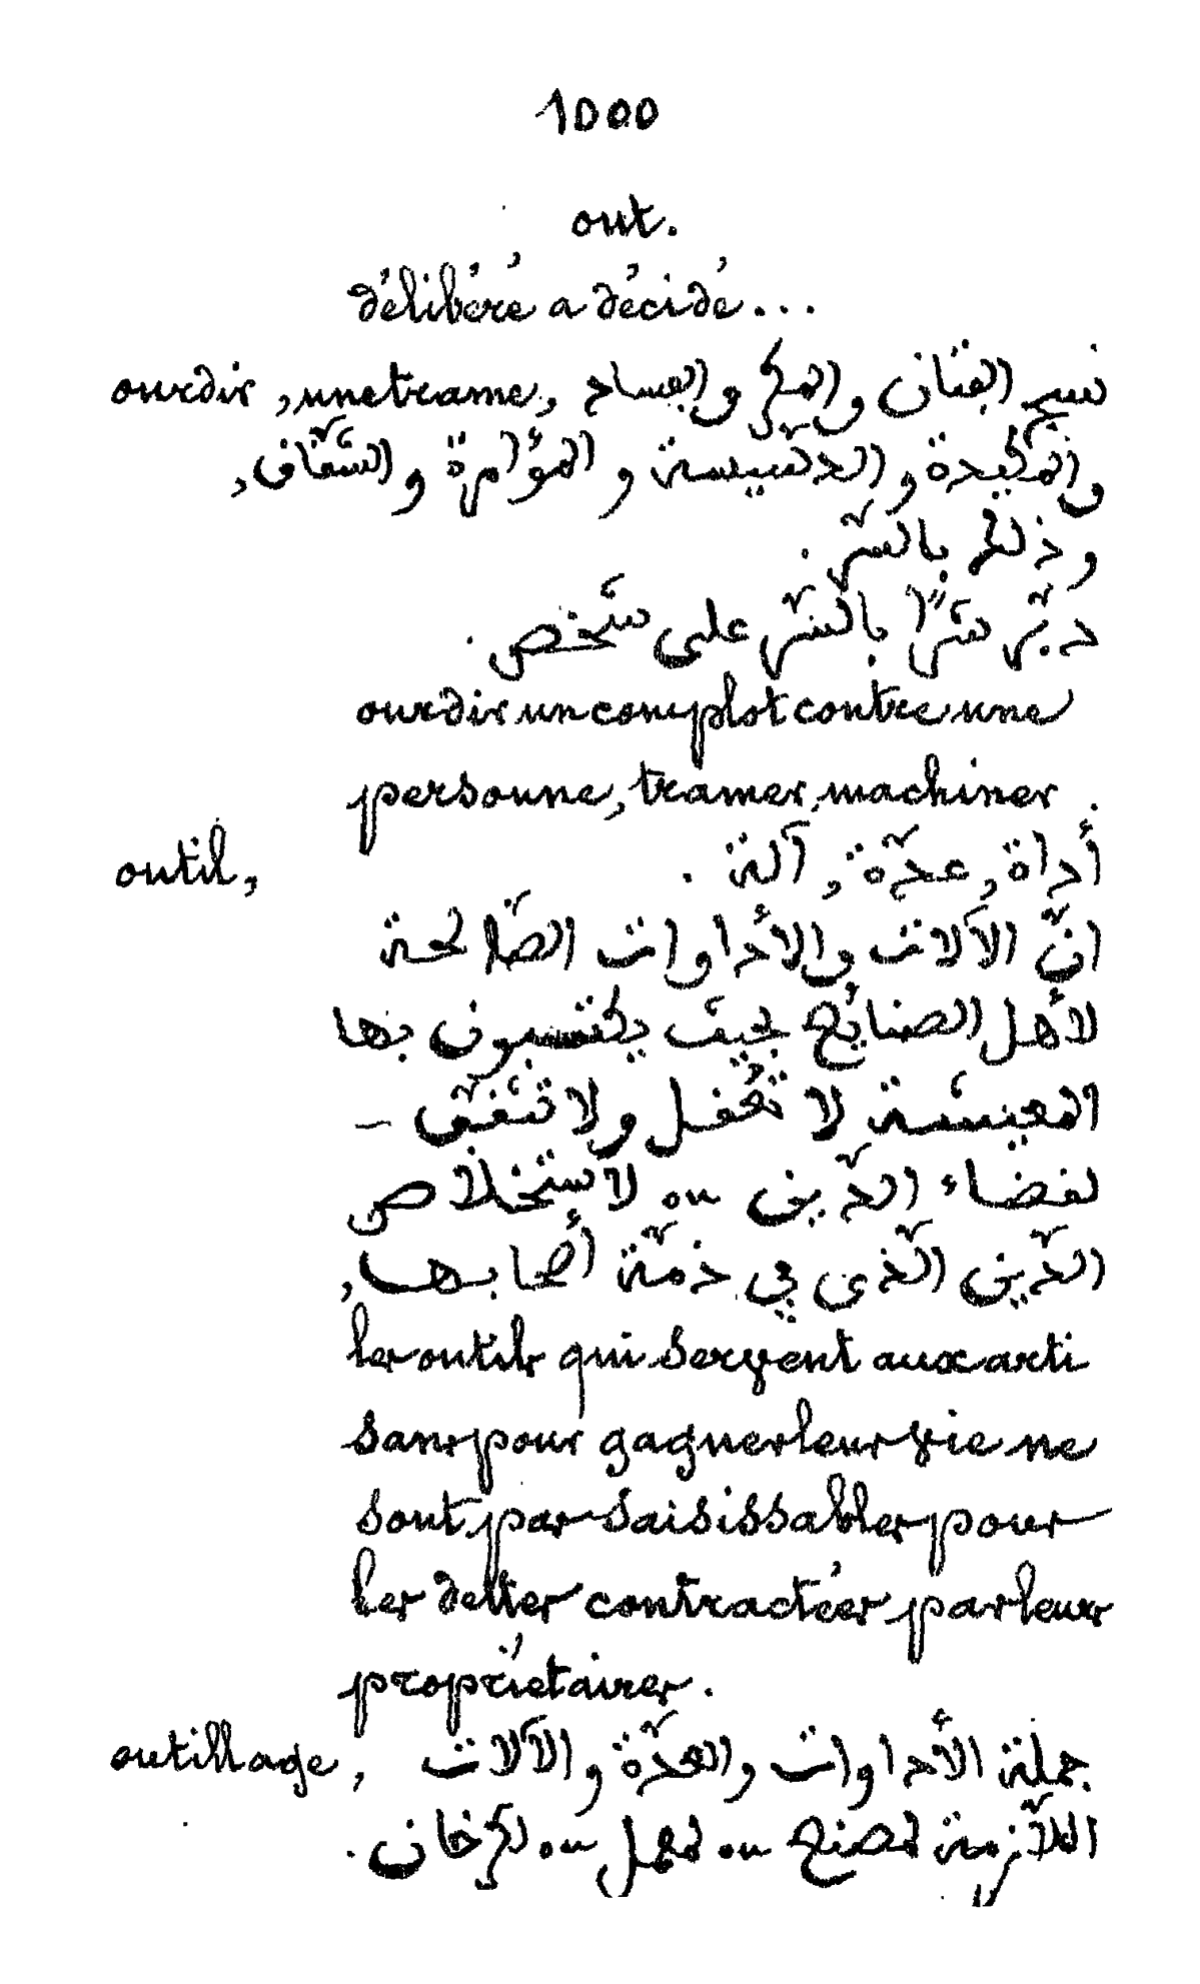 1000
out.
délibéré a décidé...
ourdir, une trame, نسج الفتان والمكر والفساد
والمكيدة والدسيسة والمؤامرة والشقاق,
وذلك بالسّر.
دبّر شرًّا بالسّر على شخص.
ourdir un complot contre une
personne, tramer, machiner.
outil, أداة, عدّة, آلة.
انّ الآلات والأداوات الصّالحة
لأهل الصنائع بحيث يكتسبون بها
المعيشة لا تعفل ولا تتثقّف -
لقضاء الدّين ou لاستخلاص
الدّين الّذي في ذمّة أصحابها,
les outils qui servent aux arti
sans pour gagner leur vie ne
sont pas saisissables pour
les dettes contractées par leurs
propriétaires.
outillage, جملة الأداوات والعدّة والآلات
اللّازمة لمصنع ou لمعمل ou لكرخان.